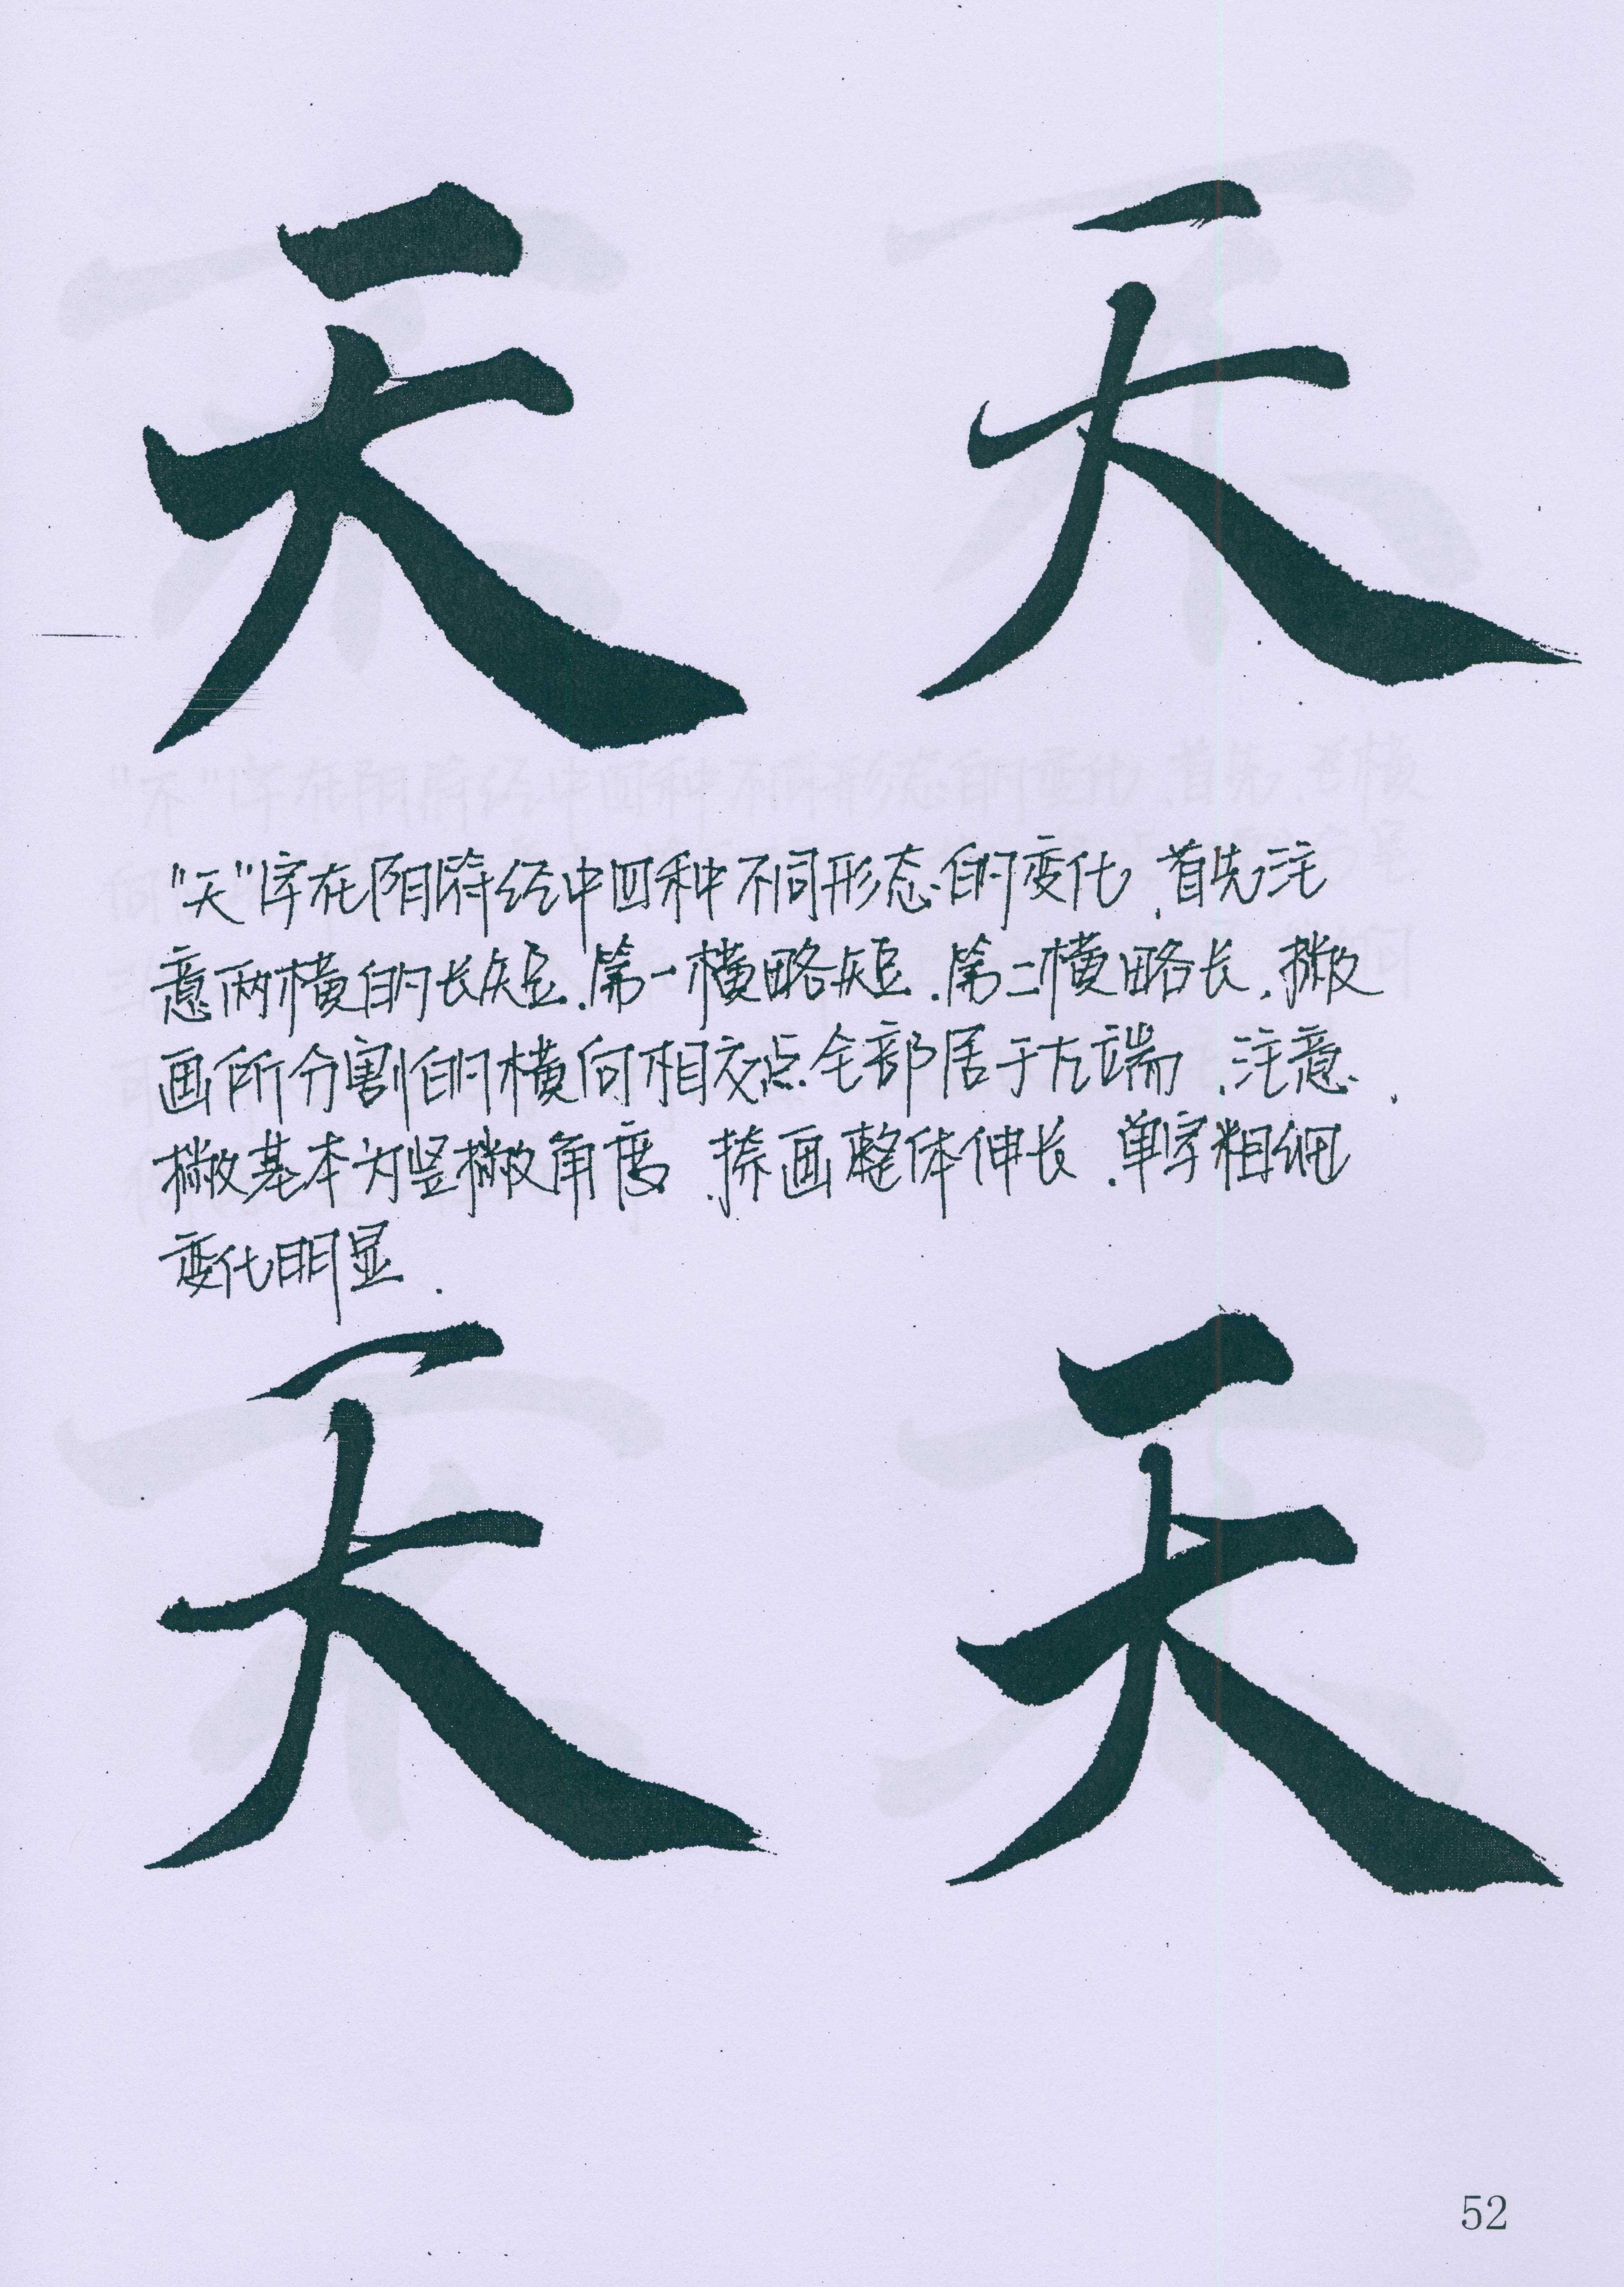 天 天
"天"字在阴符经中四种不同形态的变化.首先注
意两横的长短.第一横略短.第二横略长.撇
画所分割的横向相交点全部居于左端.注意.
撇基本为竖撇角度.捺画整体伸长.单字粗细
变化明显.
天 天
52